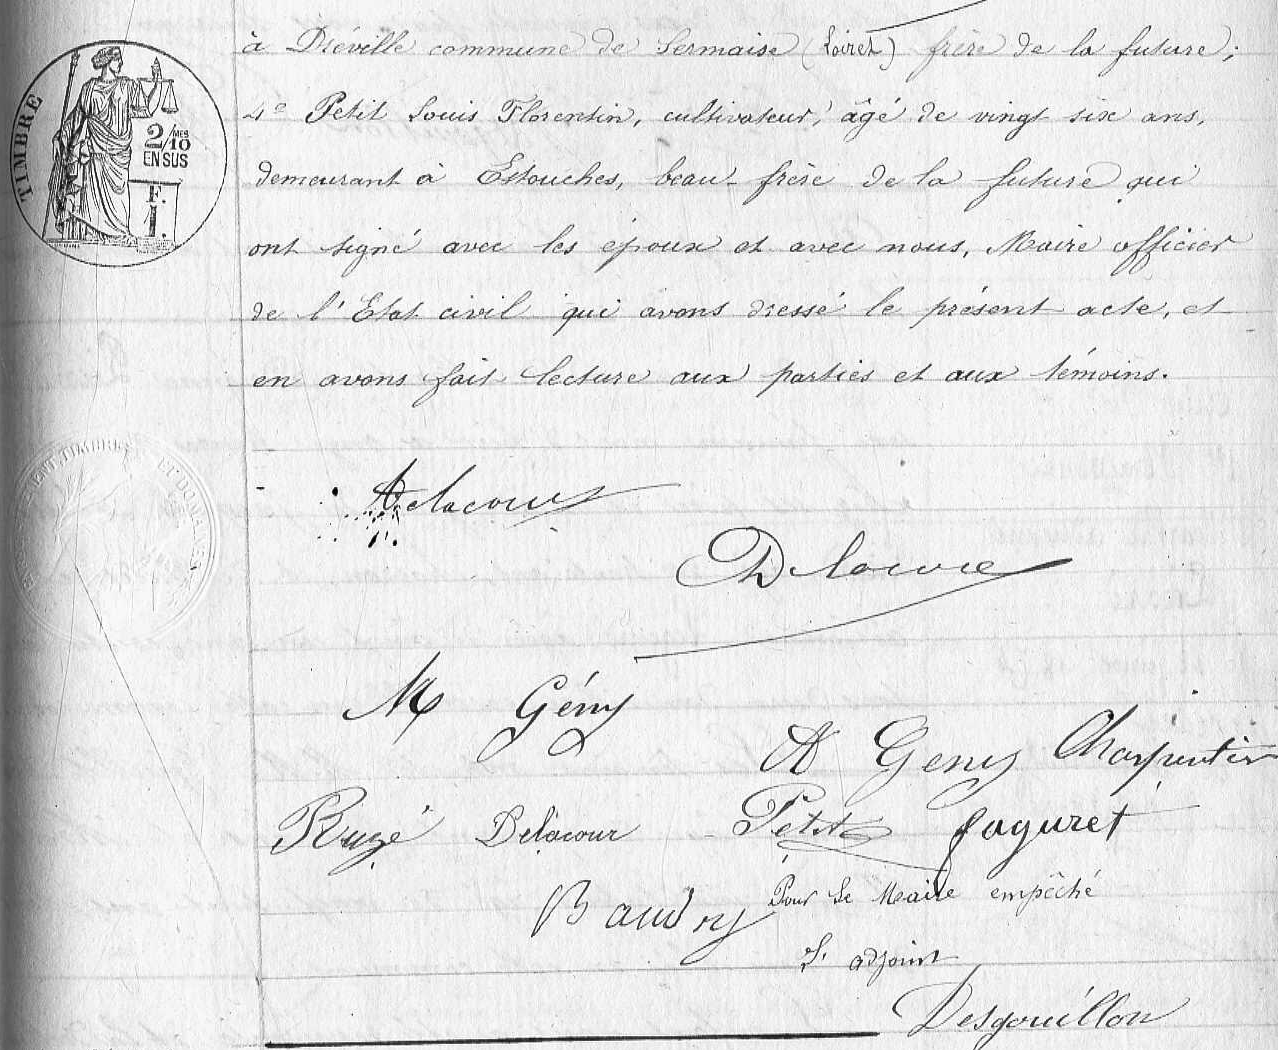 à Diéville commune de Sermaise (Loiret) frère de la future;
4e Petit Louis Florentin, cultivateur, âgé de vingt six ans,
demeurant à Estouches, beau-frère de la future qui
ont signé avec les époux et avec nous, Maire officier
de l'Etat civil qui avons dressé le présent acte, et
en avons fait lecture aux parties et aux témoins.
TIMBRE
2/10 MES
EN SUS
F.
1.
A Delacour
Delacour
M Gény
A Geny Charpentier
Ruzé Delacour Petit faguret
Baudry Pour Le Maire empêché
L'adjoint
Desgouillon